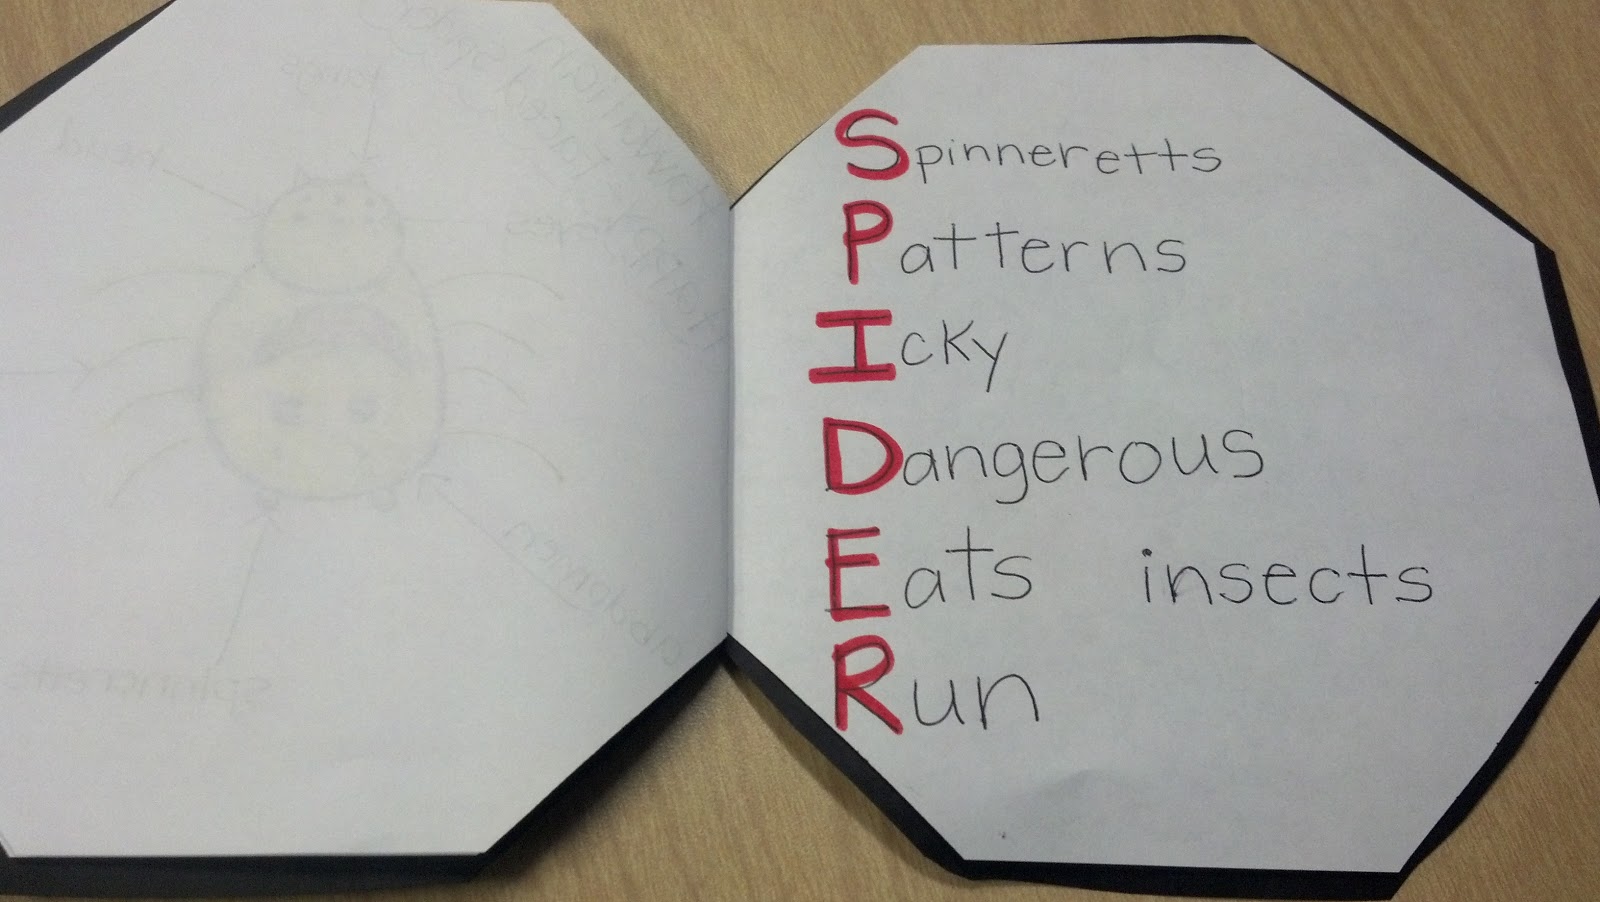 Spinneretts
Patterns
Icky
Dangerous
Eats insects
Run